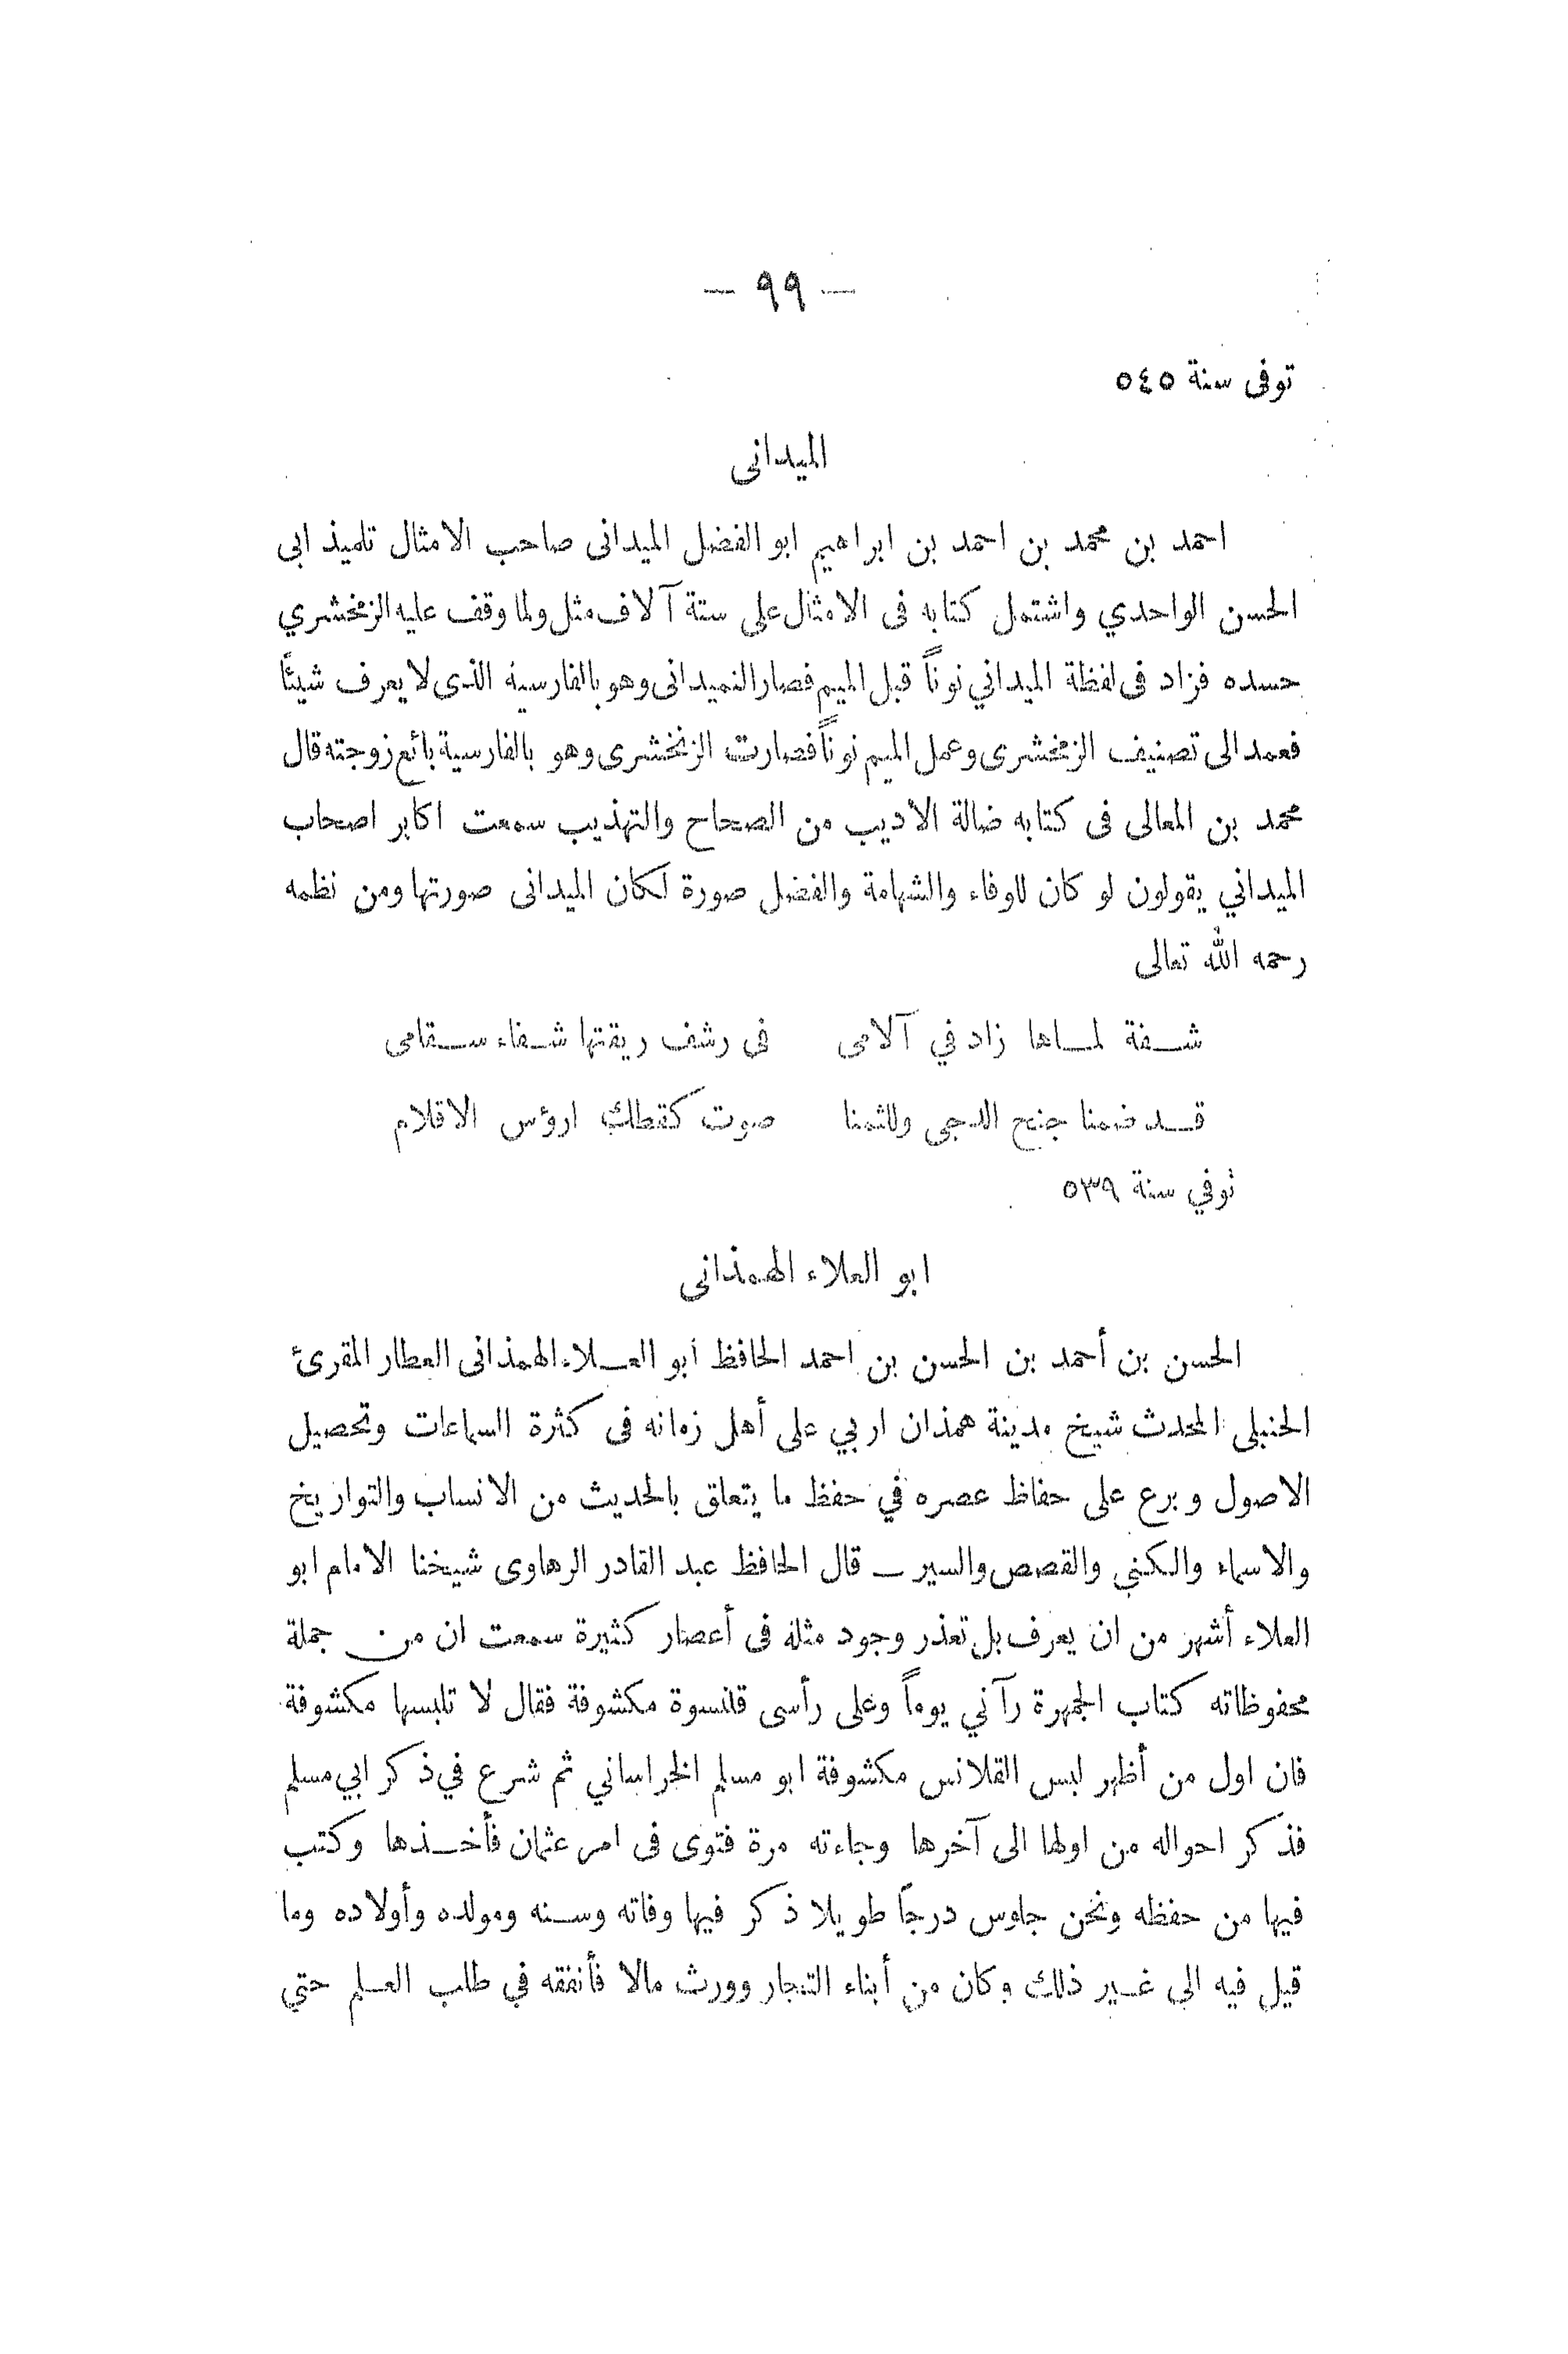 — ٩٩ —
توفى سنة ٥٤٥
الميدانى
احمد بن محمد بن احمد بن ابراهيم ابو الفضل الميدانى صاحب الامثال تلميذ ابى
الحسن الواحدي واشتمل كتابه فى الامثال على ستة آلاف مثل ولما وقف عليه الزمخشري
حسده فزاد فى لفظة الميداني نوناً قبل الميم فصار النميدانى وهو بالفارسية الذى لا يعرف شيئًا
فعمد الى تصنيف الزمخشرى وعمل الميم نوناً فصارت الزنخشرى وهو بالفارسية بائع زوجته قال
محمد بن المعالى فى كتابه ضالة الاديب من الصحاح والتهذيب سمعت اكابر اصحاب
الميداني يقولون لو كان للوفاء والشهامة والفضل صورة لكان الميدانى صورتها ومن نظمه
رحمه الله تعالى
شفة لماها زاد في آلامى فى رشف ريقتها شفاء سقامى
قد ضمنا جنح الدجى وللثمنا صوت كقطك ارؤس الاقلام
توفي سنة ٥٣٩
ابو العلاء الهمذانى
الحسن بن أحمد بن الحسن بن احمد الحافظ ابو العلاء الهمذانى العطار المقرئ
الحنبلى المحدث شيخ مدينة همذان اربي على أهل زمانه فى كثرة السماعات وتحصيل
الاصول وبرع على حفاظ عصره في حفظ ما يتعلق بالحديث من الانساب والتواريخ
والاسماء والكني والقصص والسير — قال الحافظ عبد القادر الرهاوى شيخنا الامام ابو
العلاء أشهر من ان يعرف بل تعذر وجود مثله فى أعصار كثيرة سمعت ان من جملة
محفوظاته كتاب الجمهرة رآني يوماً وعلى رأسى قلنسوة مكشوفة فقال لا تلبسها مكشوفة
فان اول من أظهر لبس القلانس مكشوفة ابو مسلم الخراساني ثم شرع في ذكر ابي مسلم
فذكر احواله من اولها الى آخرها وجاءته مرة فتوى فى امر عثمان فأخذها وكتب
فيها من حفظه ونحن جلوس درجاً طويلا ذكر فيها وفاته وسنه ومولده وأولاده وما
قيل فيه الى غير ذلك وكان من أبناء التجار وورث مالا فأنفقه في طلب العلم حتي